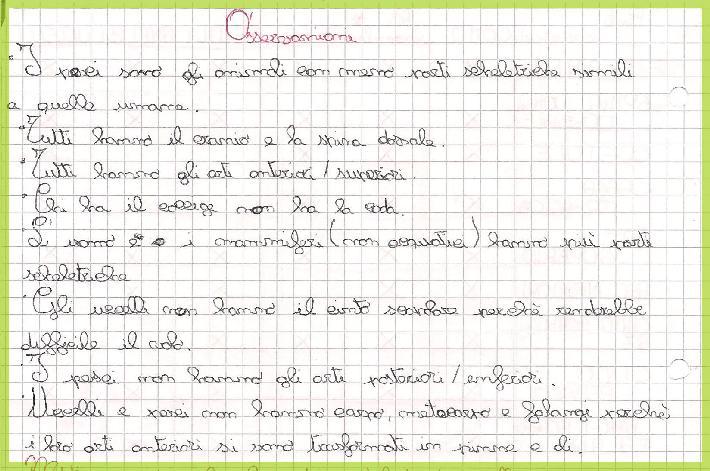 Osservazioni
I pesci sono gli animali con meno parti scheletriche simili
a quelle umane.
Tutti hanno il cranio e la spina dorsale.
Tutti hanno gli arti anteriori/superiori.
Chi ha il coccige non ha la coda.
L'uomo e i mammiferi (non acquatici) hanno più parti
scheletriche
Gli uccelli non hanno il cinto scapolare perchè renderebbe
difficile il volo.
I pesci non hanno gli arti posteriori/inferiori.
Uccelli e pesci non hanno carpo, metacarpo e falangi perchè
i loro arti anteriori si sono trasformati in pinne e ali.